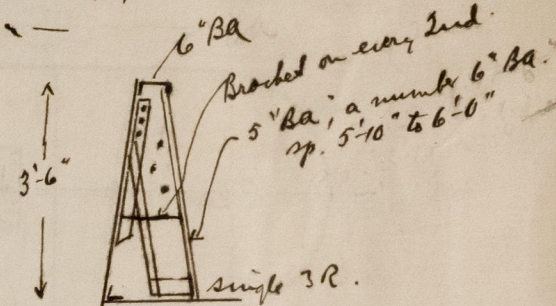 6" BA
Bracket on every 2nd.
5" BA, a number 6" BA.
sp. 5'-10" to 6'-0"
3'-6"
single 3 R.